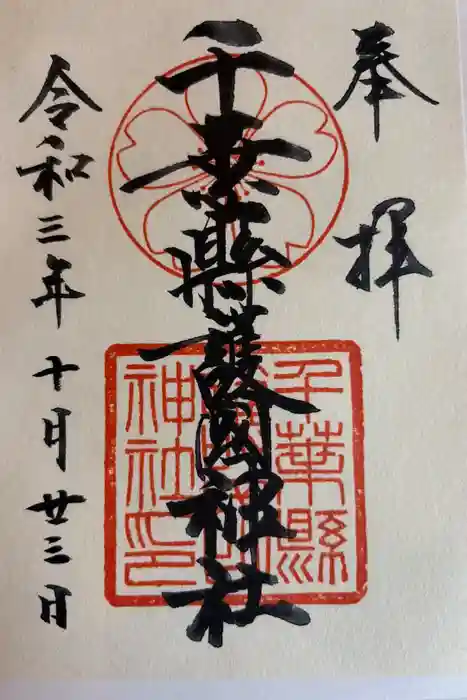 奉拝
千葉縣護國神社
千葉縣
神社印
令和三年十月廿三日